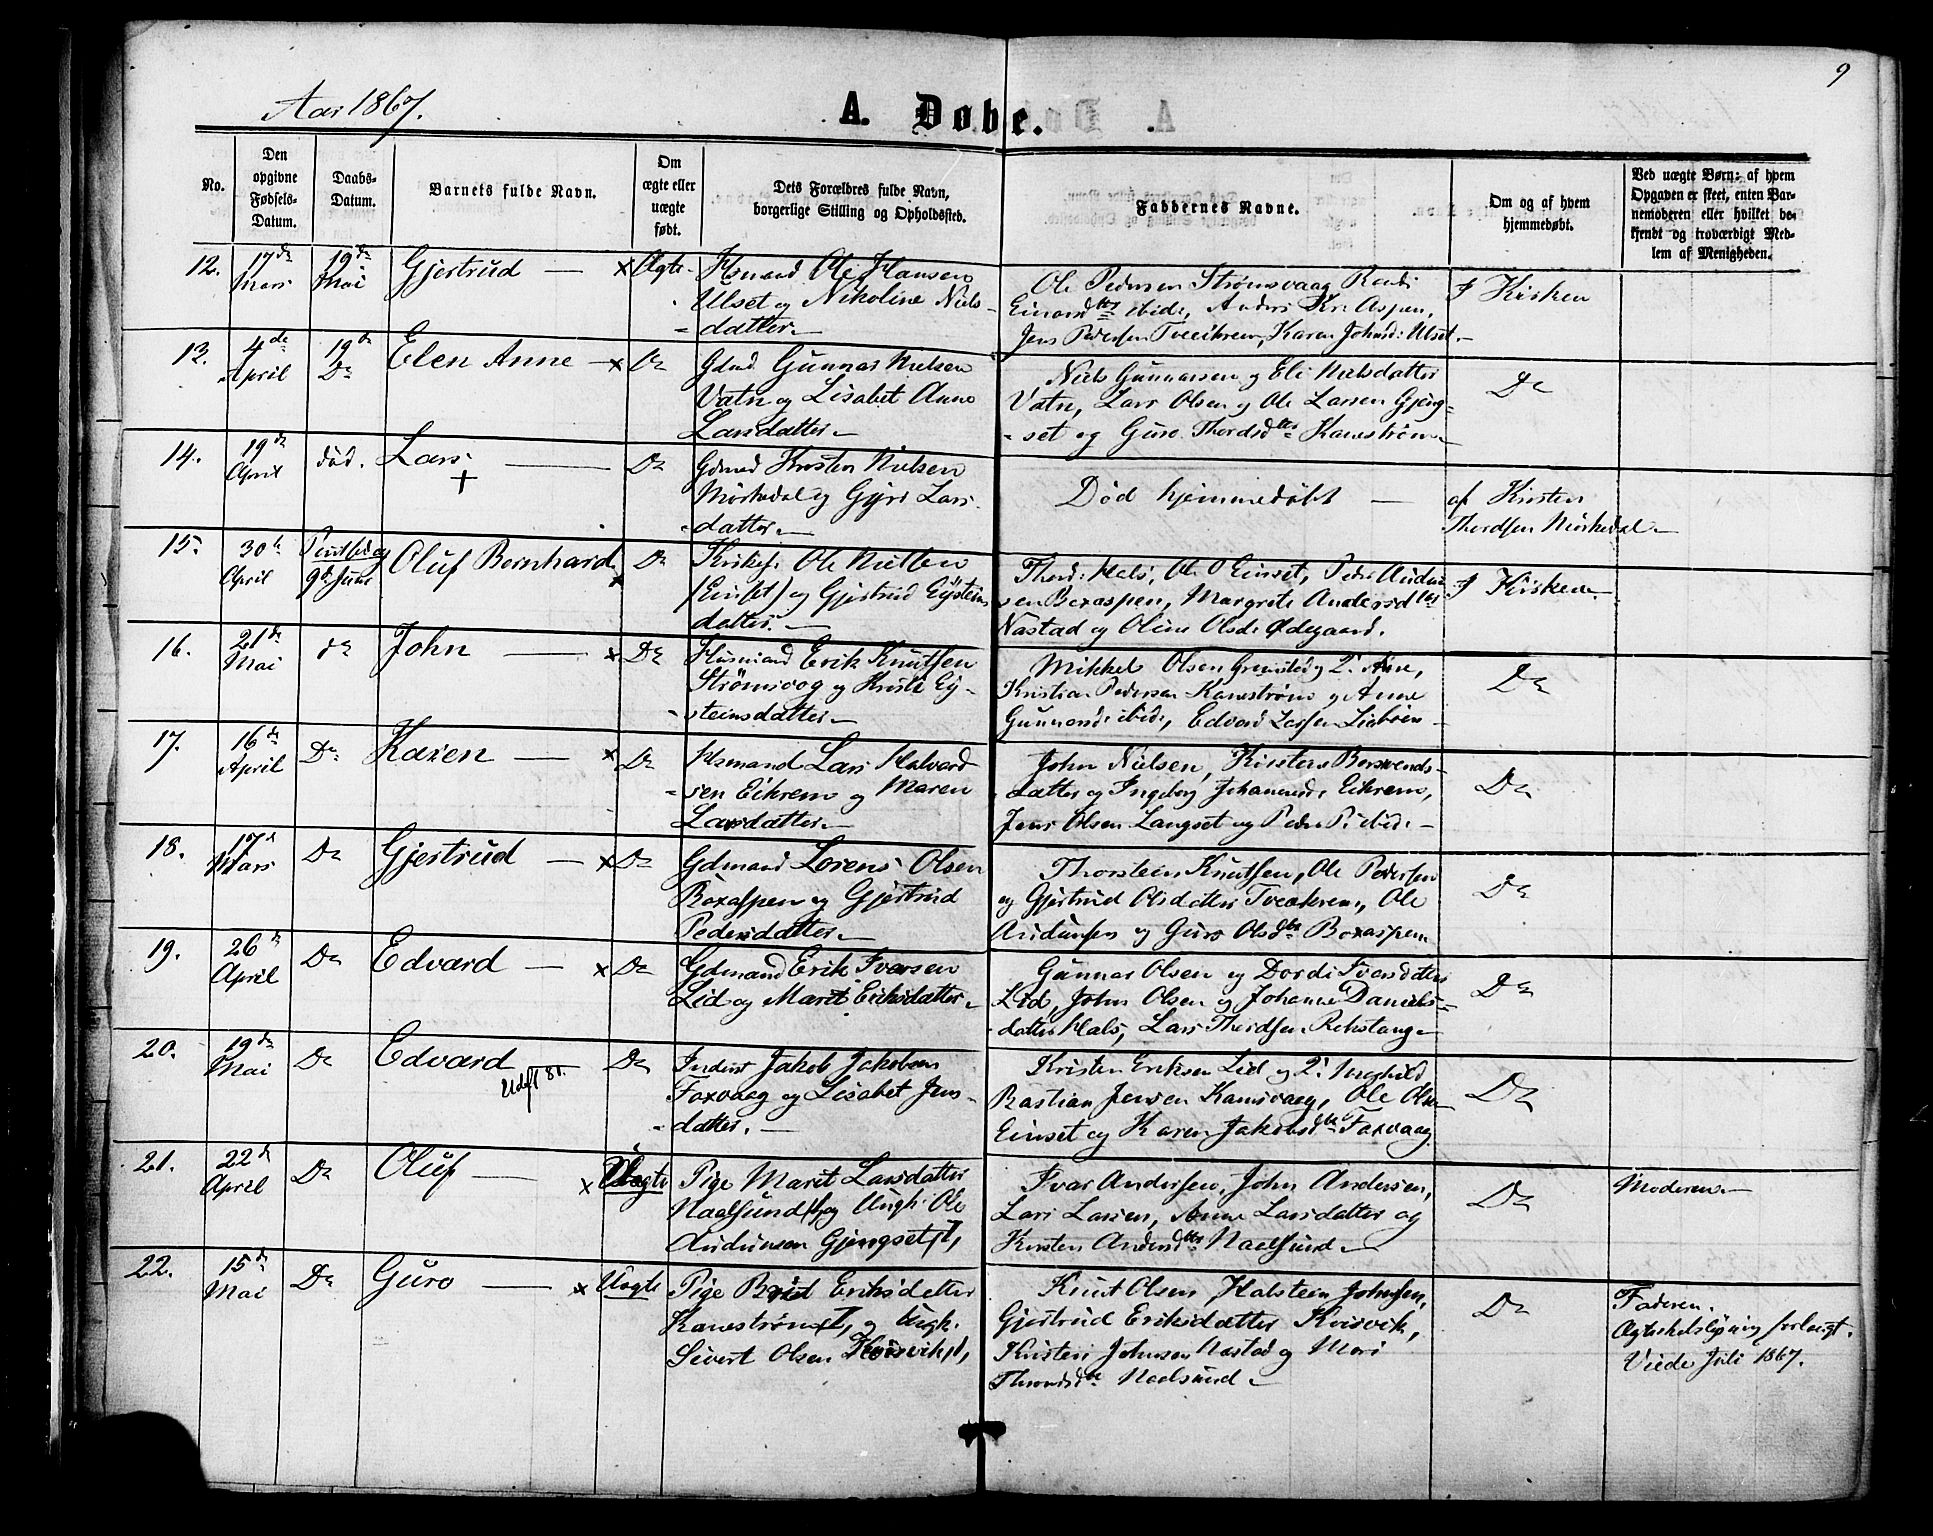 9
Aar 1867.
A. Døbe.
No.
Den opgivne Fødsels-Datum.
Daabs-Datum.
Barnets fulde Navn.
Om ægte eller uægte født.
Dets Forældres fulde Navn, borgerlige Stilling og Opholdssted.
Faddernes Navne.
Om og af hvem hjemmedøbt.
Ved uægte Børn: af hvem Opgaven er skeet, enten Barnemoderen eller hvilket bekjendt og troværdigt Medlem af Menigheden.
12. 17de Mars 19de Mai Gjertrud — x Ægte
Hsmand Ole Hansen
Ulset og Nikoline Niels-
datter
Ole Pedersen Strømsvaag Randi
Einarsdtr ibid:, Anders Kr: Aspen,
Jens Pedersen Tveeikrem, Karen Johnsd: Ulset.
I Kirken
13. 4de April 19de Do Elen Anne — x Do
Gdmd Gunnar Nielsen
Vatn og Lisabet Anne
Larsdatter
Niels Gunnarsen og Eli Nielsdatter
Vatn, Lars Olsen og Ole Larsen Gjeng-
set og Guro Thordsdtr Kanestrøm
Do
14. 19de April død. Lars + — Do
Gdmd Kristen Nielsen
Mørkedal og Gjøri Lars-
datter
Død hjemmedøbt —
af Kirsten
Thordsen Mørkedal
15. 30te April Pintsedag 9de Juni Oluf Bernhard x Do
Kirkes: Ole Nielsen
(Einset) og Gjertrud Eysteins
datter.
Thord: Hals, Ole O Einset, Peder Andersen
Boxaspen, Margrete Andersdtr
Nastad og Oline Olsdr Ødegaard.
I Kirken
16. 21de Mai do John — x Do
Husmand Erik Knutsen
Strømsvog og Kristi Ey-
steinsdatter
Mikkel Olsen Gremstad og Q: Ane,
Kristian Pedersen Kanestrøm og Anne
Gunnarsd: ibid:, Edvard Larsen Liabøen
Do
17. 16de April Do Karen — x Do
Hsmand Lars Halvard
sen Eikrem og Maren
Larsdatter
John Nielsen, Kirsten Bersvends-
datter og Ingeborg Johannesd: Eikrem,
Jens Olsen Langset og Peder P: ibid:
Do
18. 17d Mars Do Gjertrud — x Do
Gdmand Lorens Olsen
Boxaspen og Gjertrud
Pedersdatter
Thorstein Knutsen, Ole Pedersen
og Gjertrud Olsdatter Tveekrem, Ole
Audunsen og Guro Olsdtr Boxaspen
Do
19. 26de April Do Edvard — x Do
Gdmand Erik Ivarsen
Lid og Marit Eriksdatter
Gunnar Olsen og Dordi Ivarsdatter
Lid, John Olsen og Johanne Daniels-
datter Hals, Lars Thordsen Rekstang
Do
20. 19de Mai Do Edvard Udfl 81. Do
Inderst Jakob Jakobsen
Foxvaag og Lisabet Jens-
datter.
Kristen Eriksen Lid og Q: Ingebild
Bastian Jensen Kansvaag, Ole Olsen
Einset og Karen Jakobsdtr Foxvaag
Do
21. 22d April Do Oluf — x Uægte
Pige Marit Larsdatter
Naalsund og Ungk: Ole
Audunsen Gjengset
Ivar Andersen, John Andersen,
Lars Larsen, Anne Larsdatter og
Kirsten Andersdtr Naalsund
Do
Moderen
22. 15de Mai Do Guro — x Uægte
Pige Brit Eriksdatter
Kanestrøm, og Ungk.
Sivert Olsen Kvisvik,
Knut Olsen, Halstein Johnsen,
Gjertrud Eriksdatter Kvisvik,
Kristen Johnsen Nastad og Mari
Throndsdtr Naalsund
Do
Faderen.
Ægteskabslysning forlangt.
Viede Juli 1867.